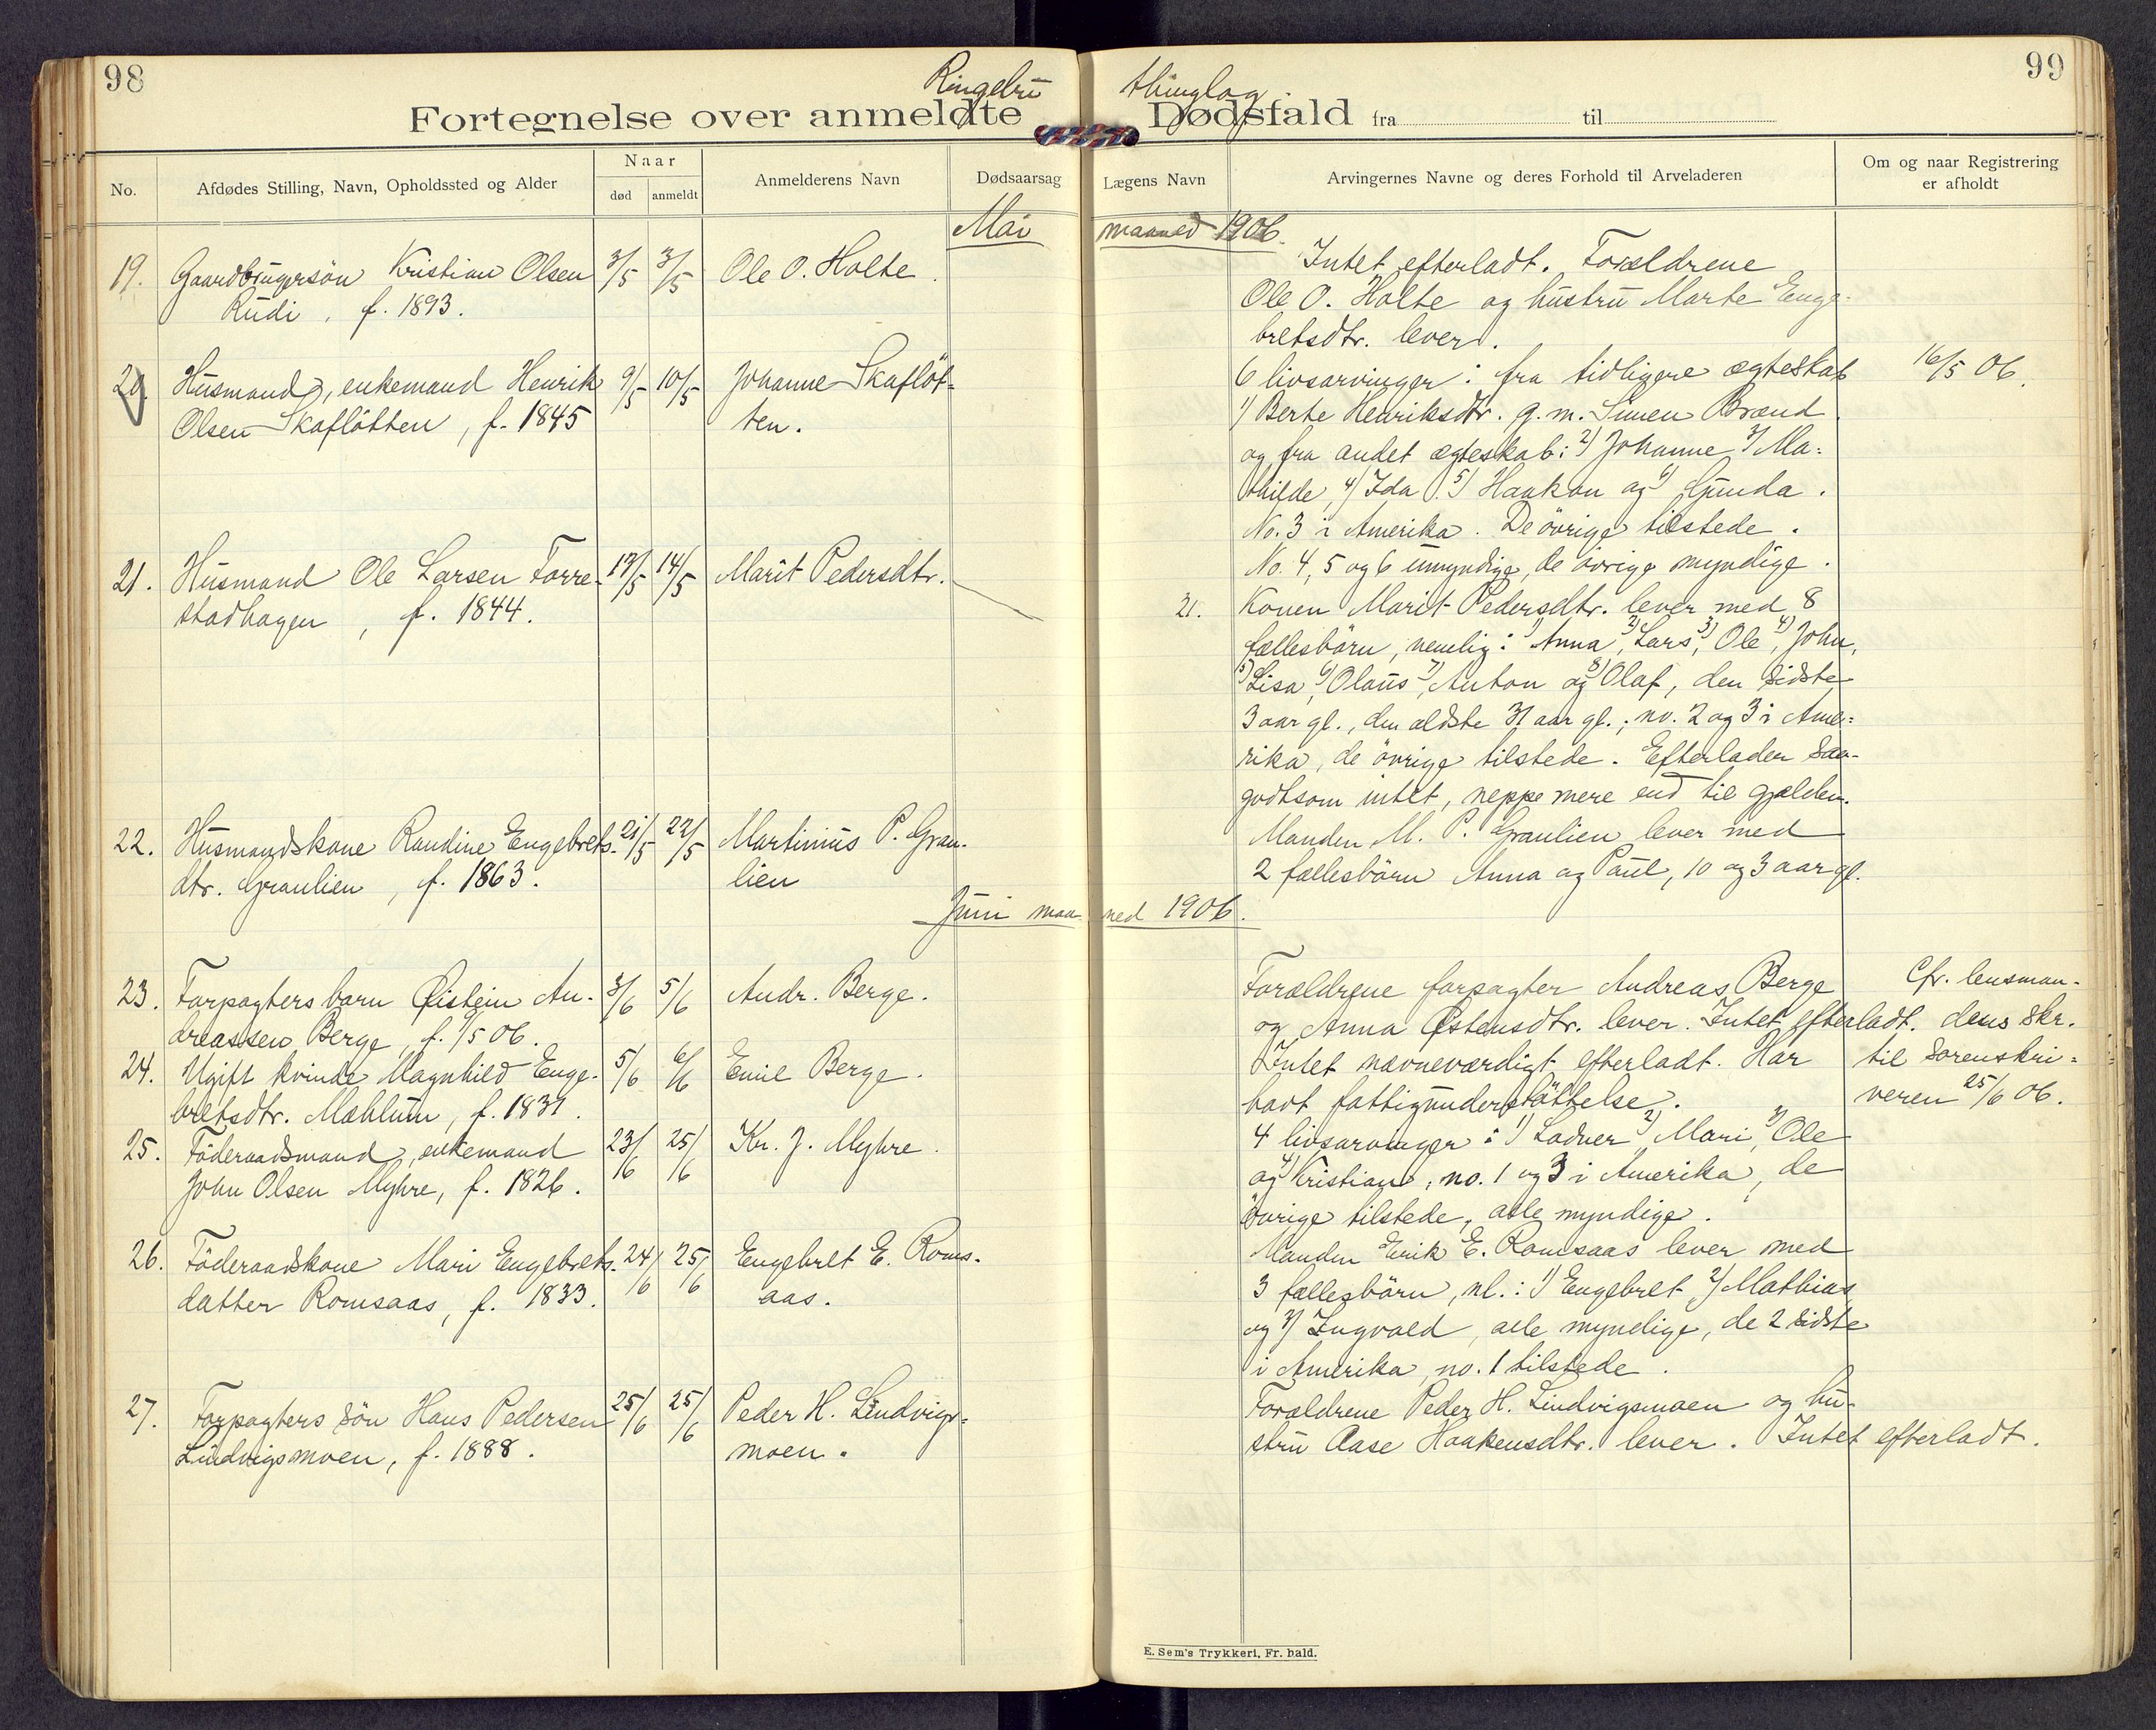 98
99
Ringebu thinglag.
Fortegnelse over anmeldte Dødsfald fra til
No.
Afdødes Stilling, Navn, Opholdssted og Alder
Naar
død
anmeldt
Anmelderens Navn
Dødsaarsag
Lægens Navn
Arvingernes Navne og deres Forhold til Arveladeren
Om og naar Registrering
er afholdt
Mai maaned 1906.
19. Gaardbrugersön Kristian Olsen 3/5 3/5 Ole O. Holte.
Rudi, f. 1893.
Intet efterladt. Forældrene
Ole O. Holte og hustru Marte Enge-
bretsdtr. lever.
20. Husmand, enkemand Henrik 9/5 10/5 Johanne Skaflöt-
Olsen Skaflötten, f. 1845 ten.
6 livsarvinger: fra tidligere ægteskab 16/5 06.
1) Berte Henriksdtr. g.m. Simen Brænd
og fra andet ægteskab: 2) Johanne 3) Ma-
thilde, 4) Ida 5) Haakon og 6) Gunda.
No. 3 i Amerika. De övrige tilstede.
No. 4, 5 og 6 umyndige, de övrige myndige.
21. Husmand Ole Larsen Forre- 13/5 14/5 Marit Pedersdtr.
stadhagen, f. 1844.
21. Konen Marit Pedersdtr. lever med 8
fællesbörn, nemlig: 1) Anna, 2) Lars, 3) Ole, 4) John,
5) Lisa, 6) Olaus, 7) Anton og 8) Olaf, den sidste
3 aar gl., den ældste 31 aar gl.; no. 2 og 3 i Ame-
rika, de övrige tilstede. Efterlader saa-
godtsom intet, neppe mere end til gjælden.
22. Husmandskone Randine Engebrets- 21/5 22/5 Martinius P. Gran-
dtr. Granlien, f. 1863. lien
Manden M. P. Granlien lever med
2 fællesbörn Anna og Paul, 10 og 3 aar gl.
Juni maaned 1906.
23. Forpagters barn Øistein An- 3/6 5/6 Andr. Berge.
dreassen Berge, f. 1/5 06.
Forældrene forpagter Andreas Berge
og Anna Østensdtr. lever. Intet efterladt.
Cfr. lensman-
dens skr.
til sorenskri-
veren 25/6 06.
24. Ugift kvinde Magnhild Enge- 5/6 6/6 Emil Berge.
bretsdtr. Mæhlum, f. 1831.
Intet navneværdigt efterladt. Har
havt fattigunderstöttelse.
25. Föderaadsmand, enkemand 23/6 25/6 Kr. J. Myhre.
John Olsen Myhre, f. 1826.
4 livsarvinger: 1) Lodver, 2) Mari, 3) Ole
og 4) Kristian, no. 1 og 3 i Amerika, de
övrige tilstede, alle myndige.
26. Föderaadskone Mari Engebrets- 24/6 25/6 Engebret E. Roms-
datter Romsaas, f. 1833. aas.
Manden Erik E. Romsaas lever med
3 fællesbörn, nl.: 1) Engebret, 2) Mathias
og 3) Ingvald, alle myndige, de 2 sidste
i Amerika, no. 1 tilstede.
27. Forpagters sön Hans Pedersen 25/6 25/6 Peder H. Lindvigs-
Lindvigsmoen, f. 1888. moen.
Forældrene Peder H. Lindvigsmoen og hu-
stru Aase Haakensdtr. lever. Intet efterladt.
E. Sem's Trykkeri, Fr. hald.